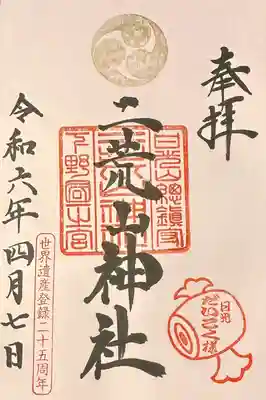 奉拝
日光山総鎮守
二荒山神社
下野國一之宮
日光
だいこく様
世界遺産登録二十五周年
令和六年四月七日